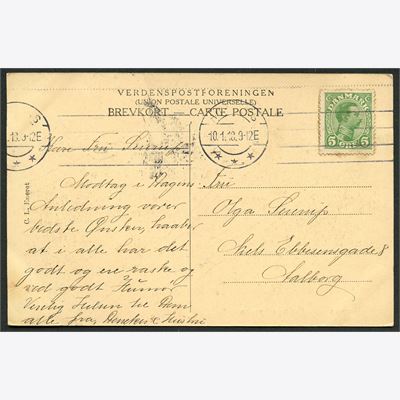 VERDENSPOSTFORENINGEN
(UNION POSTALE UNIVERSELLE)
BREVKORT — CARTE POSTALE
DANMARK
5 ØRE 5
10.1.18.9-12E
.1.18.9-12E
Kære Fru
Modtag i Dagens
Anledning vore
bedste Ønsker, haaber
at i alle har det
godt og ere raske og
ved godt Humør
Venlig Hilsen til Dem
alle fra
Fru
Olga
Niels Ebbesensgade 8
Aalborg
C. L. Faaret